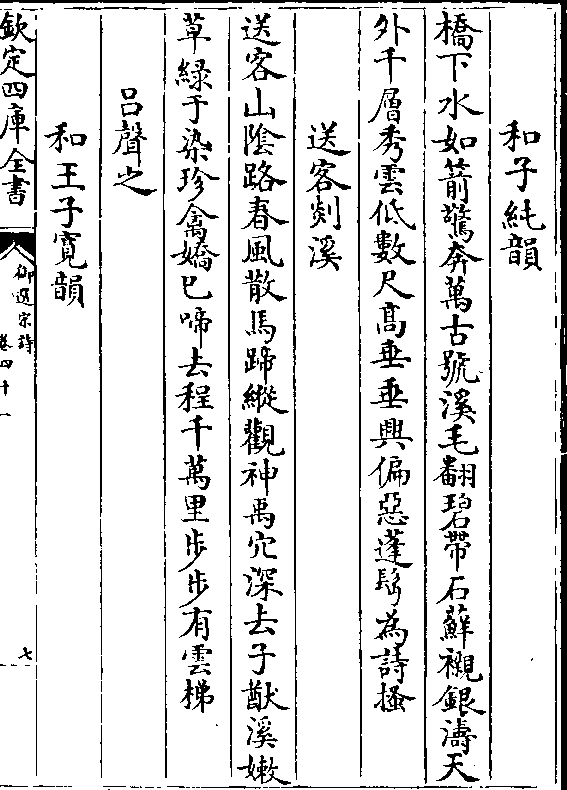 和子純韻
橋下水如箭驚奔萬古號溪毛翻碧帶石蘚襯銀濤天
外千層秀雲低數尺髙垂垂興偏惡蓬鬂為詩搔
送客剡溪
送客山隂路春風散馬蹄縱觀神禹穴深去子猷溪嫩
草緑于染珍禽嬌已啼去程千萬里歩歩有雲梯
吕聲之
和王子寛韻
欽定四庫全書
御選宋詩
卷四十一
七